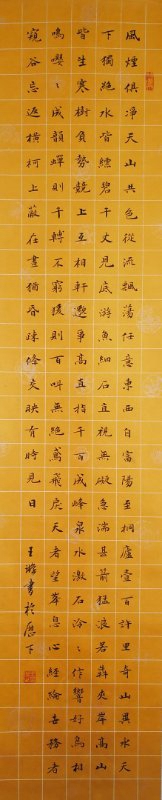 風煙俱淨天山共色從流飄蕩任意東西自富陽至桐廬壹百許里奇山異水天
下獨絕水皆縹碧千丈見底游魚細石直視無礙急湍甚箭猛浪若奔夾岸高山
皆生寒樹負勢競上互相軒邈爭高直指千百成峰泉水激石泠〻作響好鳥相
鳴嚶〻成韻蟬則千轉不窮猿則百叫無絕鳶飛戾天者望峯息心經綸世務者
窺谷忘返橫柯上蔽在晝猶昏疎條交映有時見日 王書於歷下